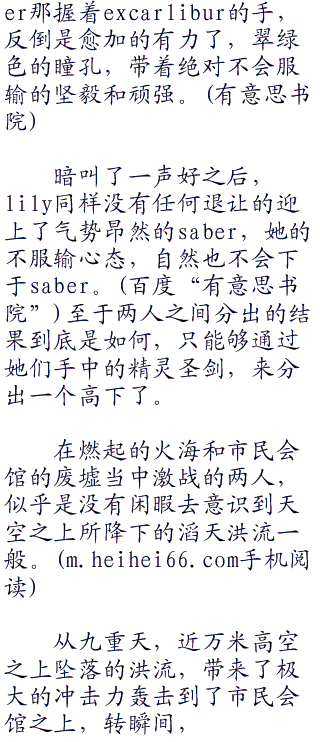 er那握着excarlibur的手，
反倒是愈加的有力了，翠绿
色的瞳孔，带着绝对不会服
输的坚毅和顽强。(有意思书
院)
暗叫了一声好之后，
lily同样没有任何退让的迎
上了气势昂然的saber，她的
不服输心态，自然也不会下
于saber。(百度“有意思书
院”)至于两人之间分出的结
果到底是如何，只能够通过
她们手中的精灵圣剑，来分
出一个高下了。
在燃起的火海和市民会
馆的废墟当中激战的两人，
似乎是没有闲暇去意识到天
空之上所降下的滔天洪流一
般。(m.heihei66.com手机阅
读)
从九重天，近万米高空
之上坠落的洪流，带来了极
大的冲击力轰击到了市民会
馆之上，转瞬间，